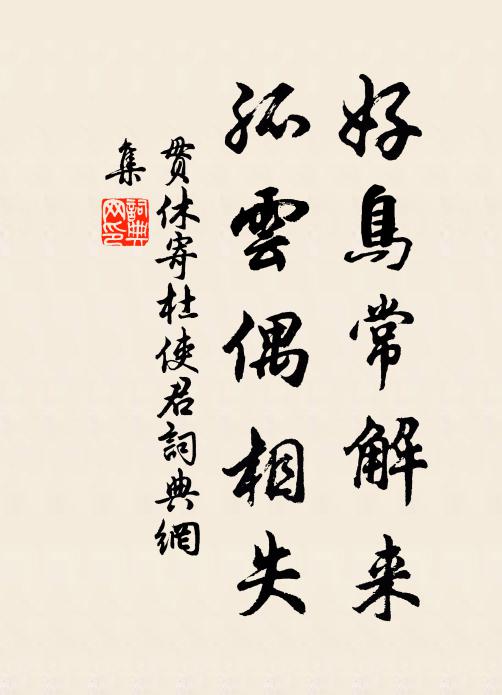 好鳥常解来
孤雲偶相失
貫休寄杜使君詞典網
集
詞典
网印